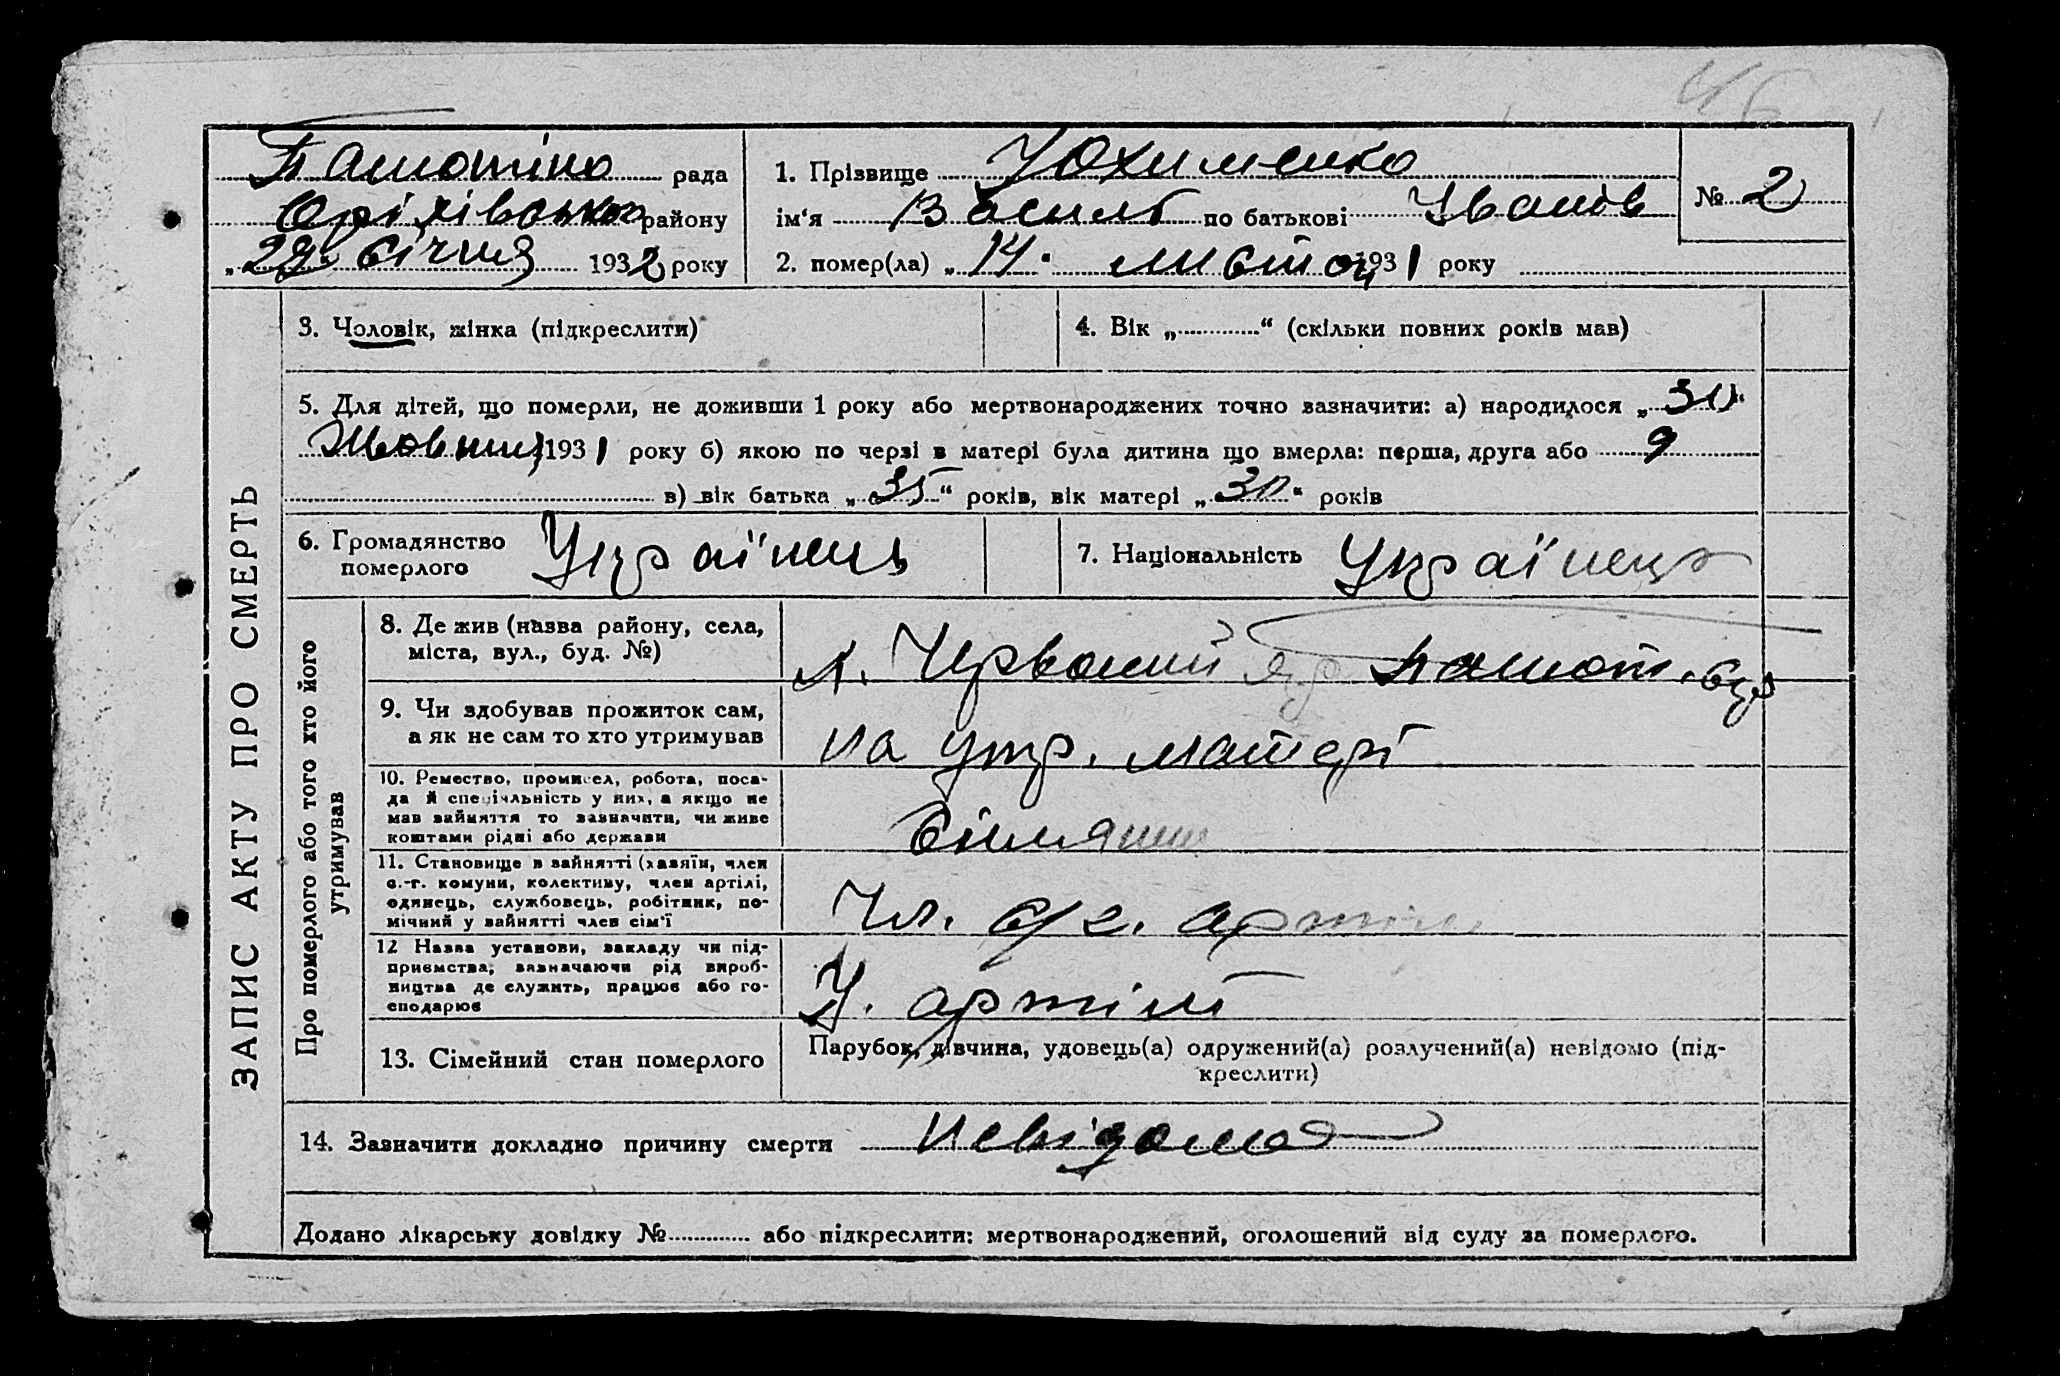 46
рада
Оріхівського району
„29“ січня 1932 року
1. Прізвище Юхименко
ім‘я Василь по батькові Іванов
№ 2
2. помер(ла) „14“ листоп 1931 року
ЗАПИС АКТУ ПРО СМЕРТЬ
3. Чоловік, жінка (підкреслити)
4. Вік „............“ (скільки повних років мав)
5. Для дітей, що померли, не доживши 1 року або мертвонароджених точно зазначити: а) народилося „30“
Жовтня 1931 року б) якою по черзі в матері була дитина що вмерла: перша, друга або 9
в) вік батька „35“ років, вік матері „30“ років
6. Громадянство
померлого Українець
7. Національність Українець
Про померлого або того хто його
утримував
8. Де жив (назва району, села,
міста, вул., буд. №)
х. Червоний Яр
9. Чи здобував прожиток сам,
а як не сам то хто утримував
на утр. матері
10. Ремество, промисел, робота, поса-
да й спеціяльність у них, а якщо не
мав зайняття то зазначити, чи живе
коштами рідні або держави
11. Становище в зайнятті (хазяїн, член
с.-г. комуни, колективу, член артілі,
одинець, службовець, робітник, по-
мічний у зайнятті член сім‘ї
Чл. с/г. артіли
12 Назва установи, закладу чи під-
приємства, зазначаючи рід вироб-
ництва де служить, працює або го-
сподарює
У. артілі
13. Сімейний стан померлого
Парубок, дівчина, удовець(а) одружений(а) розлучений(а) невідомо (під-
креслити)
14. Зазначити докладно причину смерти невідома
Додано лікарську довідку №............ або підкреслити: мертвонароджений, оголошений від суду за померлого.